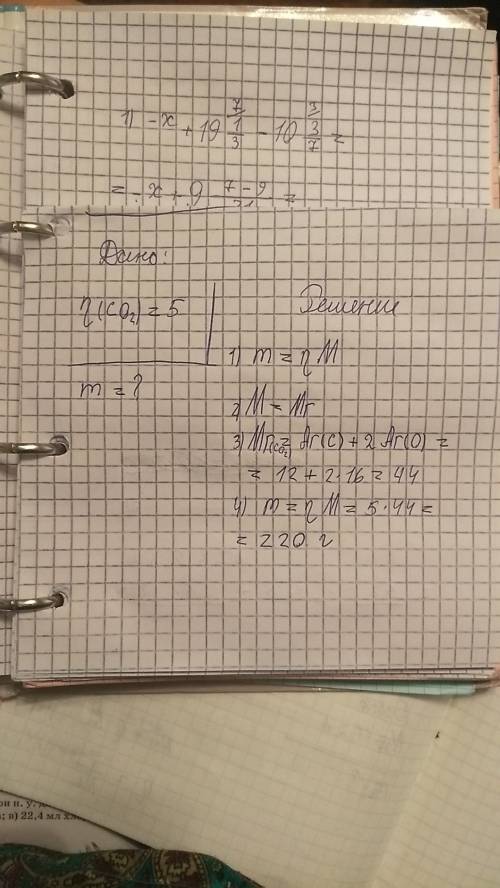 1) -x + 19 1/3 - 10 3/7 =
= -x + 9 7-9/21 =
Дано:
η(CO₂) = 5
m = ?
Решение
1) m = ηM
2) M = Mr
3) Mr(CO₂) = Ar(C) + 2Ar(O) =
= 12 + 2·16 = 44
4) m = ηM = 5·44 =
= 220 г
ри н. у.
; в) 22,4 мл